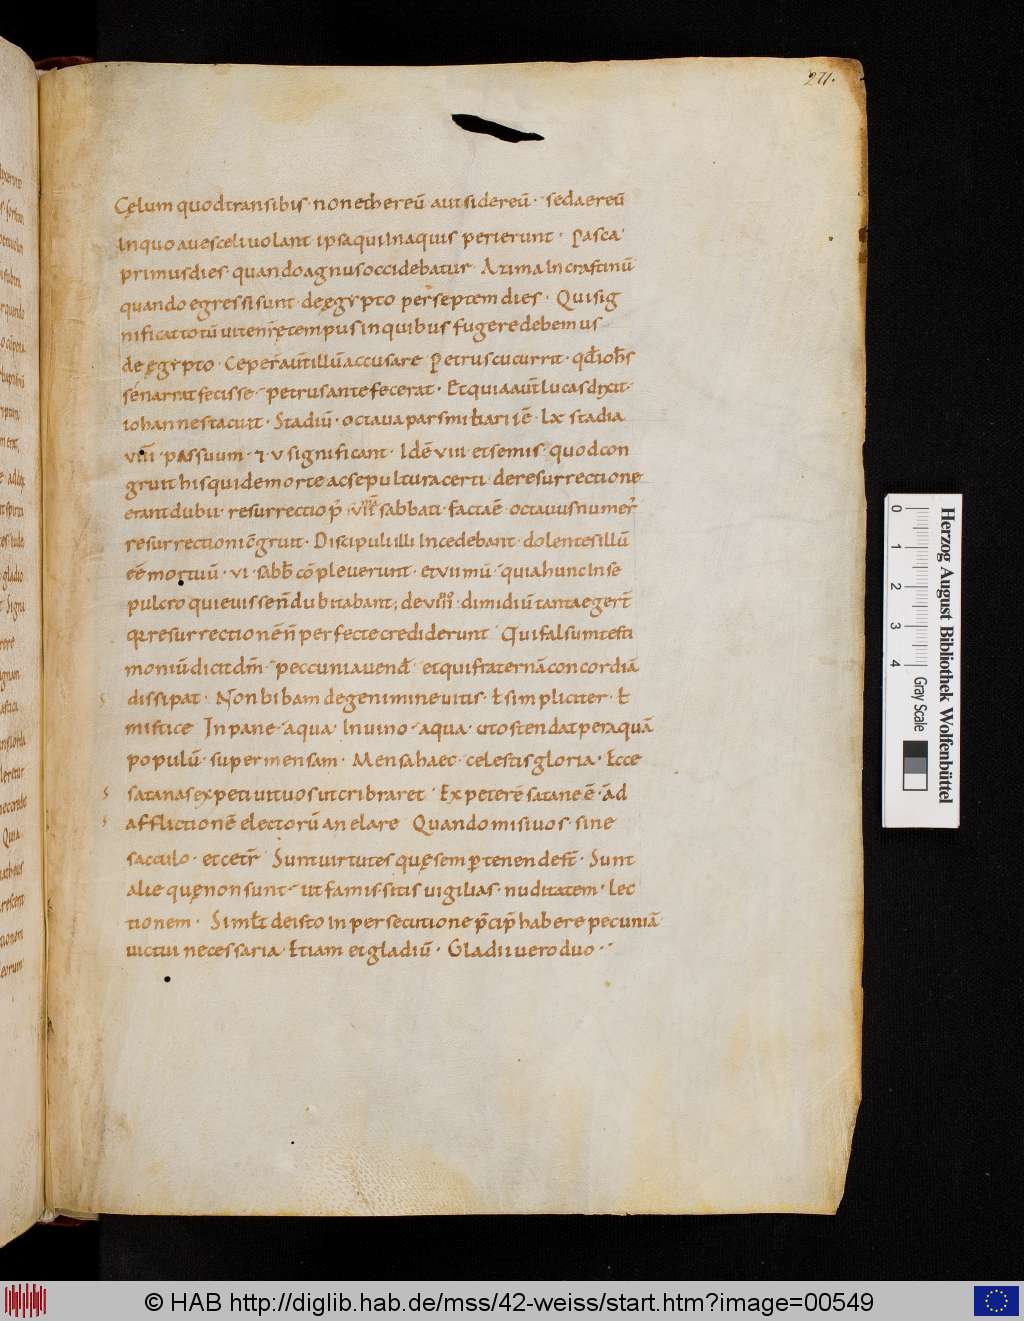 271.
Cęlum quod transibis · non ethereū aut sidereū · sed aereū
In quo aves celi volant ipsa qui In aquis perierunt · Pasca
primus dies · quando agnus occidebatur · Azima In crastinū
quando egressi sunt · de ęgypto per septem dies · Qui sig
nificat totū vitę nr̄ę tempus in quibus fugere debemus
de ęgypto · Ceper̄ aut̄ illū accusare Petrus cucurrit · qd̄ ioh̄s
se narrat fecisse · petrus ante fecerat · Et quia aut̄ lucas dixit ·
iohannes tacuit · Stadiū · octava pars miliarii ē · lx stadia
viii · passuum · significant · Idē vii et semis · quod con
gruit his qui de morte ac sepultura certi · de resurrectione
erant dubii · resurrectio sabbati · facta ē · octavus numer
resurrectioni cgruit · Discipuli illi Incedebant dolentes illū
eē mortuū · vi · sabb̄ cō pleverunt · et vii mū · quia hunc In se
pulcro quievissen̄ dubitabant; de dimidiū tanta egert̄
resurrectionē n̄ perfecte crediderunt Qui falsum testi
moniū dicit dm̄ peccunia vend̄ et qui fraternā concordiā
dissipat · Non bibam de genimine vitis · ł simpliciter · ł
mistice In pane · aqua · In vino · aqua · ut ostendat per aquā
populū · super mensam · Mensa haec · celestis gloria · Ecce
satanas expetivit vos ut cribraret Expeterē satane ē · ad
afflictionē electorū anelare Quando misi vos · sine
sacculo · et cetr̄ Sunt virtutes quę semp̄ tenende st̄ · Sunt
alie quę non sunt · ut famis sitis vigilias · nuditatem · lec
tionem · Simł de isto In persecutione p̄cip̄ habere pecuniā
victui necessaria · Etiam et gladiū · Gladii vero duo ·
Herzog August Bibliothek Wolfenbüttel
0 1 2 3 4
Gray Scale
© HAB http://diglib.hab.de/mss/42-weiss/start.htm?image=00549